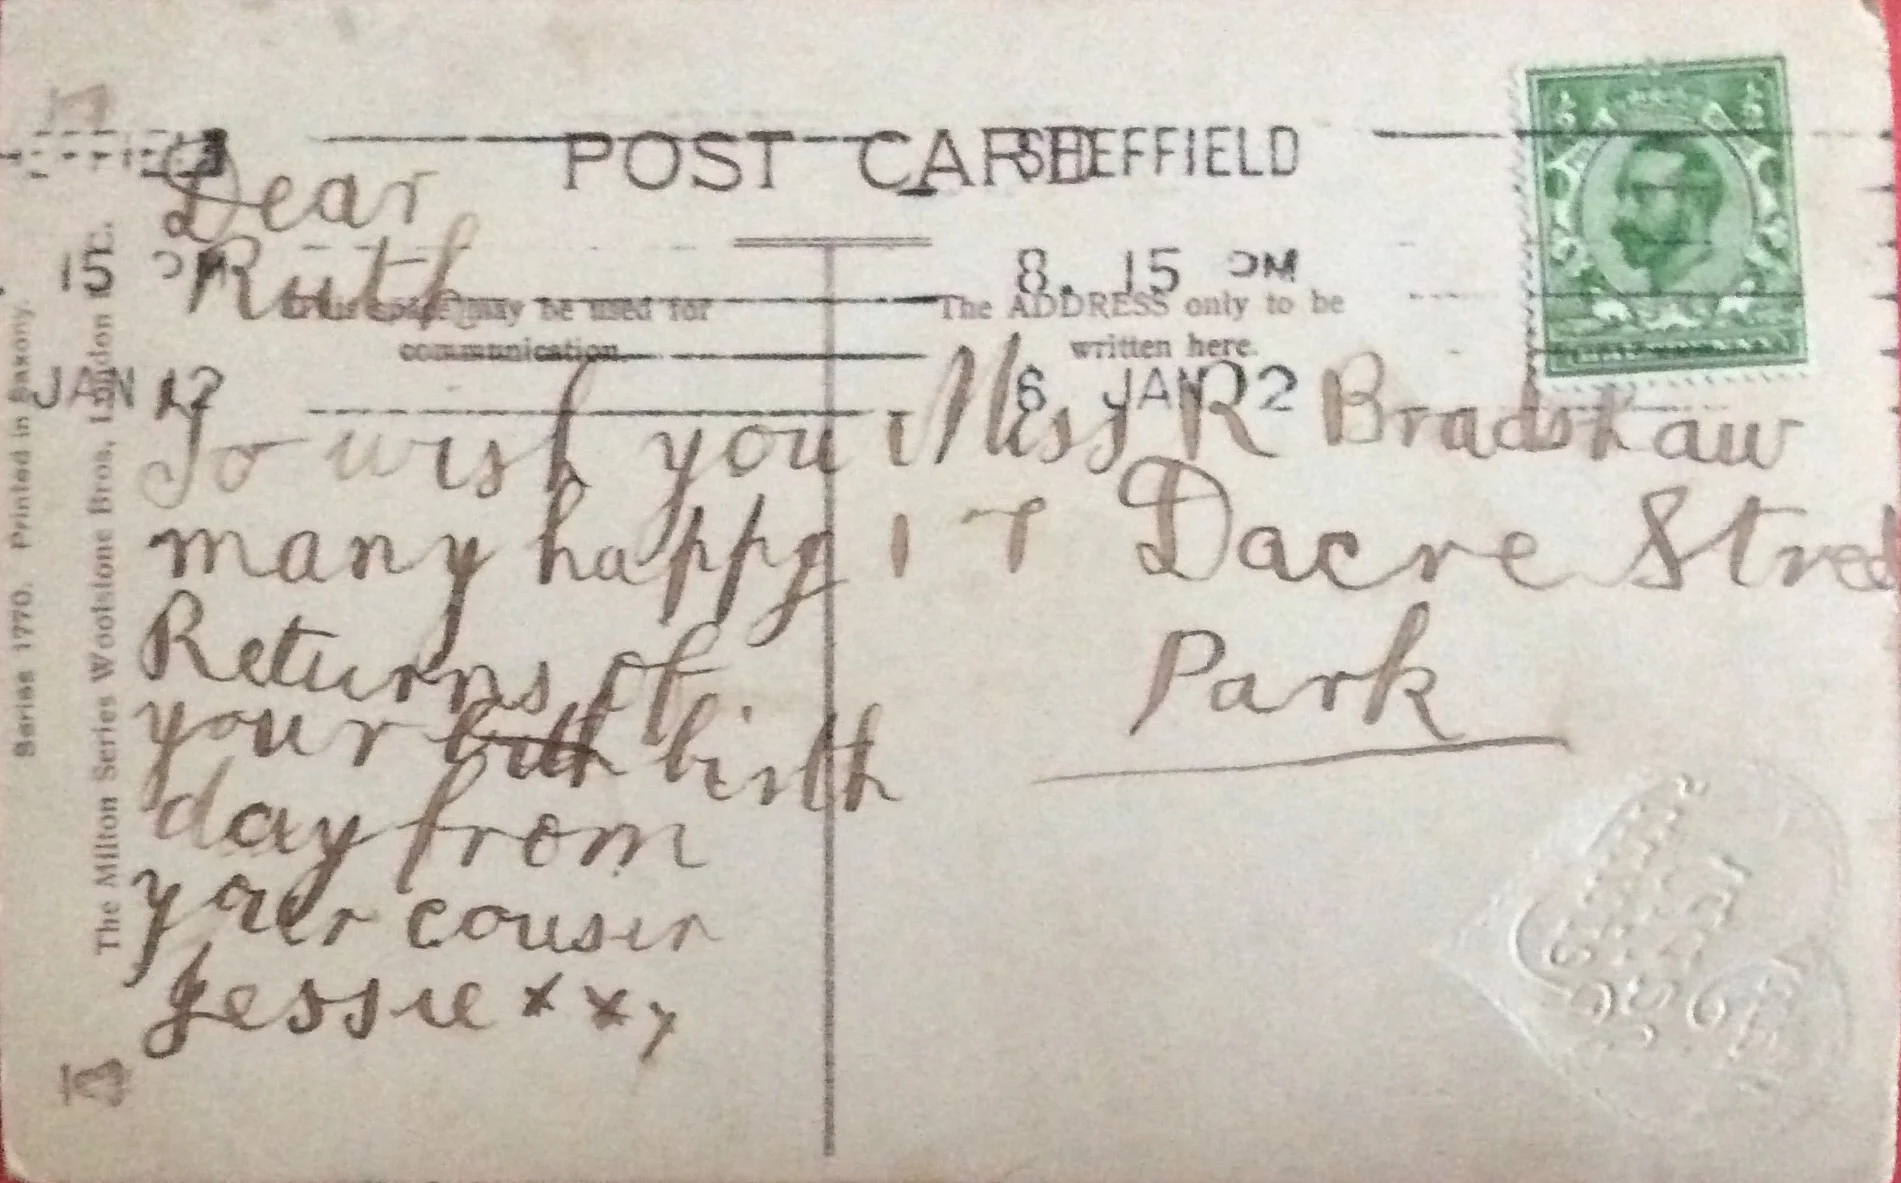 POST CARD
SHEFFIELD
8. 15 PM
6 JAN 12
15 PM
JAN 12
This space may be used for
communication.
The ADDRESS only to be
written here.
Dear
Ruth
To wish you
many happy
Returns of
your birth birth
day from
your cousin
Jessie x x x
Miss R Bradshaw
17 Dacre Street
Park
The Milton Series Woolstone Bros, London E.C.
Series 1770. Printed in Saxony.